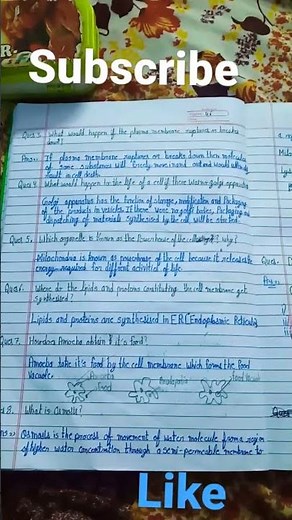 R.
Subscribe
Ques 3. What would happen if the plasma membrane ruptures or breaks
down?
Ans:- If plasma membrane ruptures or breaks down then molecules
of some substances will freely move in and out and would ultimately
result in cell death.
Ques 4. What would happen to the life of a cell if there was no Golgi apparatus
Golgi apparatus has the function of storage, modification and Packaging
of the products in vesicles. If there were no golgi bodies, Packaging and
dispatching of materials synthesised by the cell will be
Ques 5. Which organelle is known as the Powerhouse of the cell? Why?
Mitochondria is known as powerhouse of the cell because it releases the
energy required for different activities of life.
Ques 6. Where do the lipids and proteins constituting the cell membrane get
synthesised?
Lipids and proteins are synthesised in ER (Endoplasmic Reticulum)
Ques 7. How does Amoeba obtain it's food?
Amoeba take it's food by the cell membrane which forms the food
Vacuole.
Amoeba
food
Pseudopodia
food
8. What is osmosis?
Osmosis is the process of movement of water molecule from a region
of higher water concentration through a semi-permeable membrane to
Like